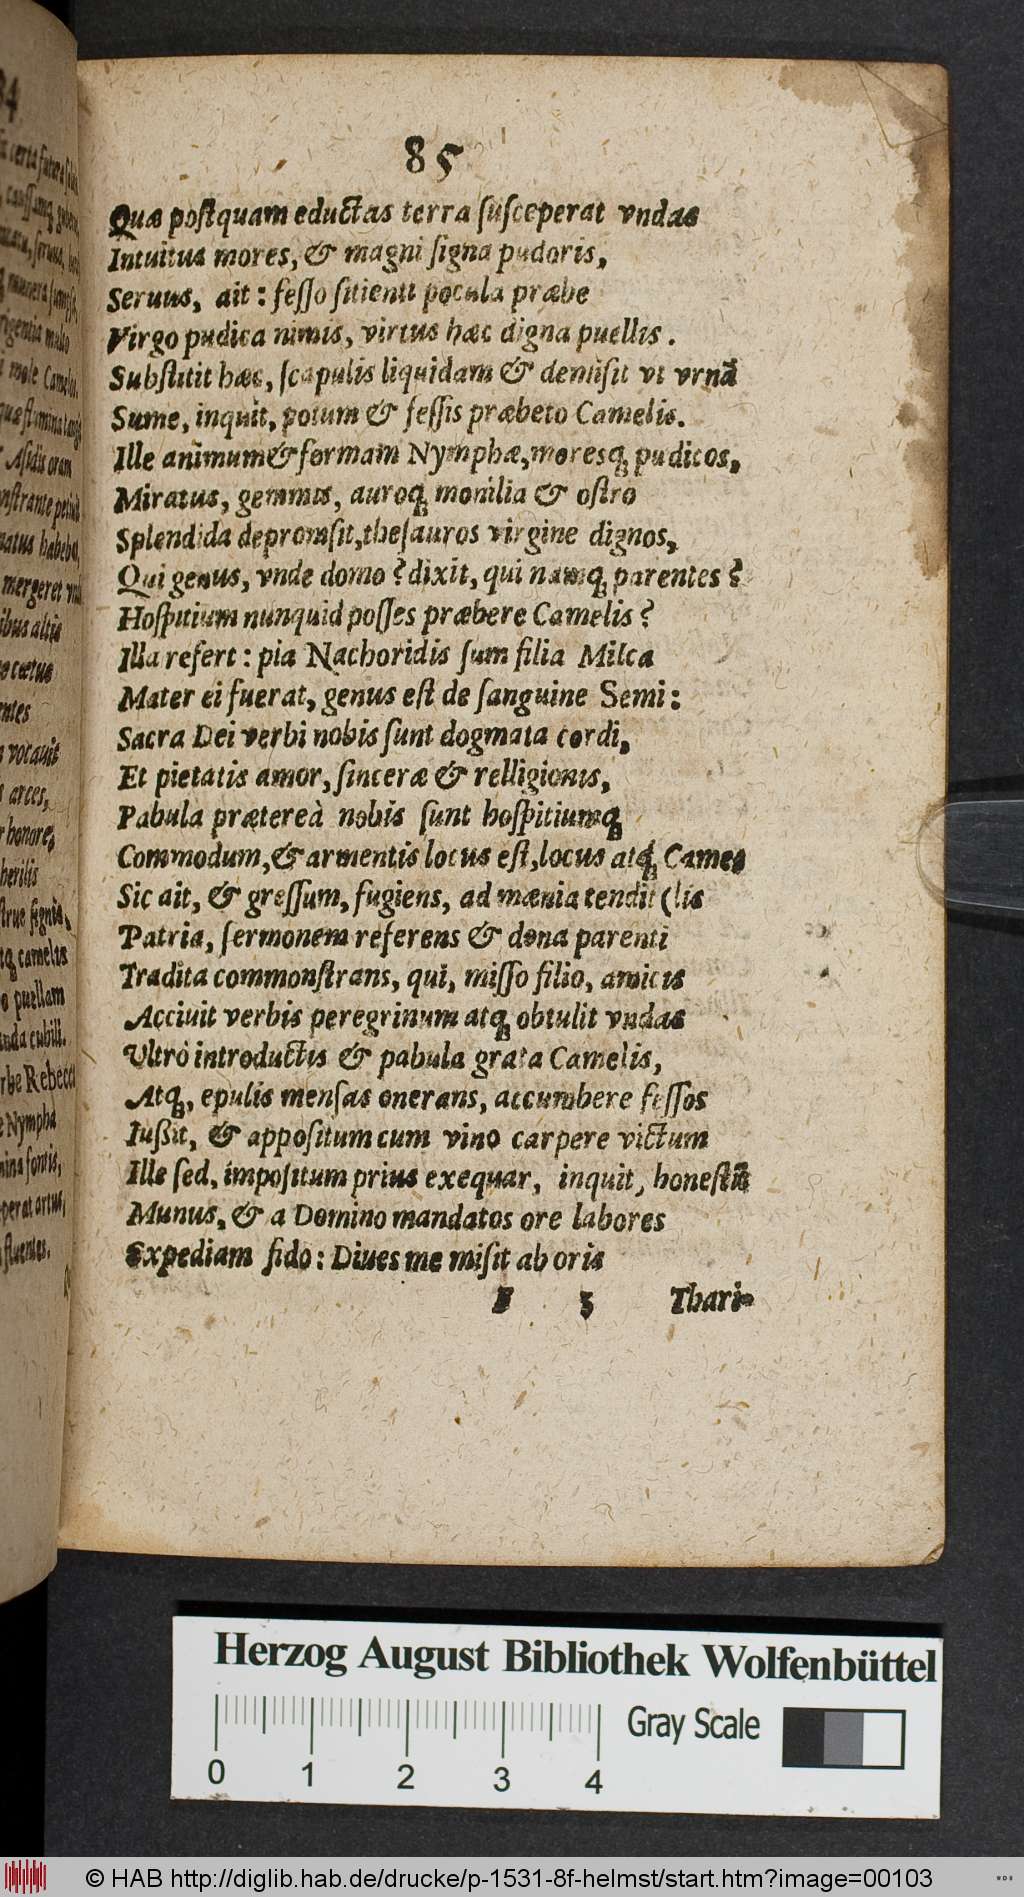 85
Quæ postquam eductas terra susceperat vndas
Intuitus mores, & magni signa pudoris,
Seruus, ait: fesso sitienti pocula præbe
Virgo pudica nimis, virtus hæc digna puellis.
Substitit hæc, scapulis liquidam & demisit vt vrnā
Sume, inquit, potum & fessis præbeto Camelis.
Ille animum & formam Nymphæ, moresq; pudicos,
Miratus, gemmis, auroq; monilia & ostro
Splendida depromsit, thesauros virgine dignos,
Qui genus, vnde domo? dixit, qui namq; parentes?
Hospitium nunquid posses præbere Camelis?
Illa refert: pia Nachoridis sum filia Milca
Mater ei fuerat, genus est de sanguine Semi:
Sacra Dei verbi nobis sunt dogmata cordi,
Et pietatis amor, sinceræ & relligionis,
Pabula prætereà nobis sunt hospitiumq;
Commodum, & armentis locus est, locus atq; Came-
Sic ait, & gressum, fugiens, ad mænia tendit (lis
Patria, sermonem referens & dona parenti
Tradita commonstrans, qui, misso filio, amicis
Acciuit verbis peregrinum atq; obtulit vndas
Vltrò introductis & pabula grata Camelis,
Atq;, epulis mensas onerans, accumbere fessos
Iußit, & appositum cum vino carpere victum
Ille sed, impositum prius exequar, inquit, honestū
Munus, & a Domino mandatos ore labores
Expediam fido: Diues me misit ab oris
F 3 Thari-
84
mergeret
vocauit
arces,
honore,
herilis
camelis
puellam
cubili.
Nympha
fontis,
artus,
fluentes.
Herzog August Bibliothek Wolfenbüttel
Gray Scale
0 1 2 3 4
© HAB http://diglib.hab.de/drucke/p-1531-8f-helmst/start.htm?image=00103